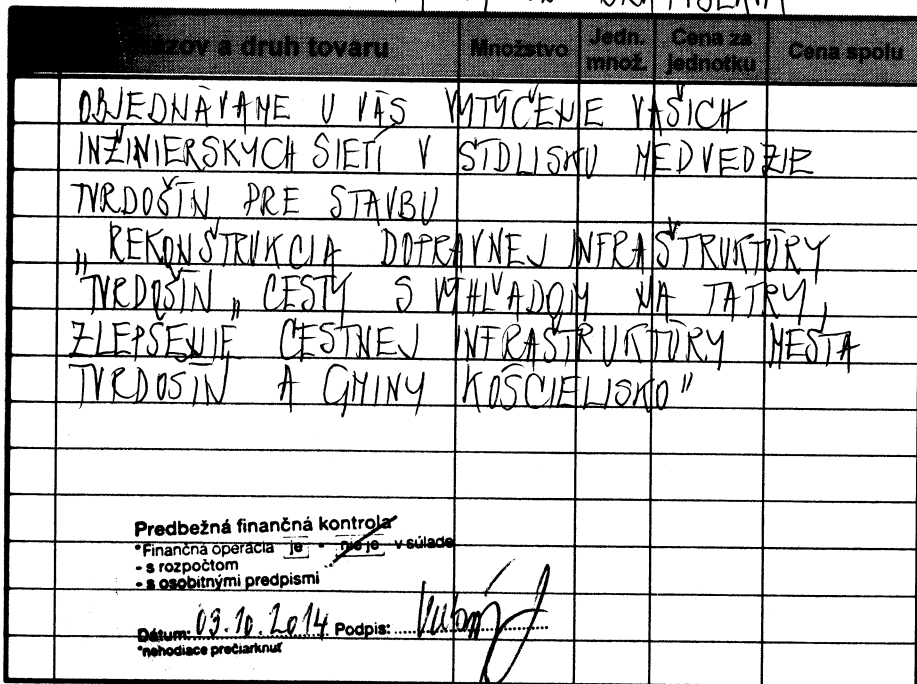 BRATISLAVA
Názov a druh tovaru Množstvo Jedn. množ. Cena za jednotku Cena spolu
OBJEDNÁVAME U VÁS VYTÝČENIE VAŠICH
INŽINIERSKYCH SIETÍ V SÍDLISKU MEDVEDZIE
TVRDOŠÍN PRE STAVBU
„REKONŠTRUKCIA DOPRAVNEJ INFRAŠTRUKTÚRY
TVRDOŠÍN „ CESTY S VÝHĽADOM NA TATRY,
ZLEPŠENIE CESTNEJ INFRAŠTRUKTÚRY MESTA
TVRDOŠÍN A GMINY KOŚCIELISKO"
Predbežná finančná kontrola
*Finančná operácia je - nie je v súlade
- s rozpočtom
- s osobitnými predpismi
Dátum: 03.10.2014 Podpis:
*nehodiace prečiarknuť